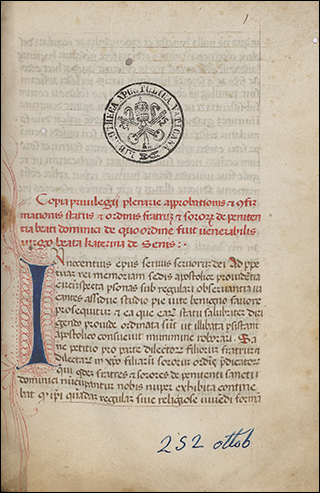 1
BIBLIOTHECA APOSTOLICA VATICANA
Copia privilegij plenarie aprobationis et cōfir
mationis status et ordinis fratrū et sororū de peniten
tia beati dominici de quo ordine fuit venerabilis
virgo beata katerina de Senis :
Innocentius ep̄us servus servorū dei Ad ppe
tuā rei memoriam sedis apostolice providentia
circūspecta p̄sonas sub regulari observantia vi
cantes assiduo studio pie vite benigno favore
prosequitur et ea que eārū statū salubriter diri
gendo provide ordinata sūt ut illibata p̄sistant
apostolico cōsuevit munimine roborari. Sa
ne petitio pro parte dilectorū filiorū fratrū et
dilectarū in xp̄o filiarū sororū ordīs p̄dicatorū
qui q̄dē fratres et sorores de penitentia sancti
dominici nūcupantur nobis nuper exhibita contine
bat qd̄ ip̄i quandā regulam sive religiose vivēdi formā
252 ottob